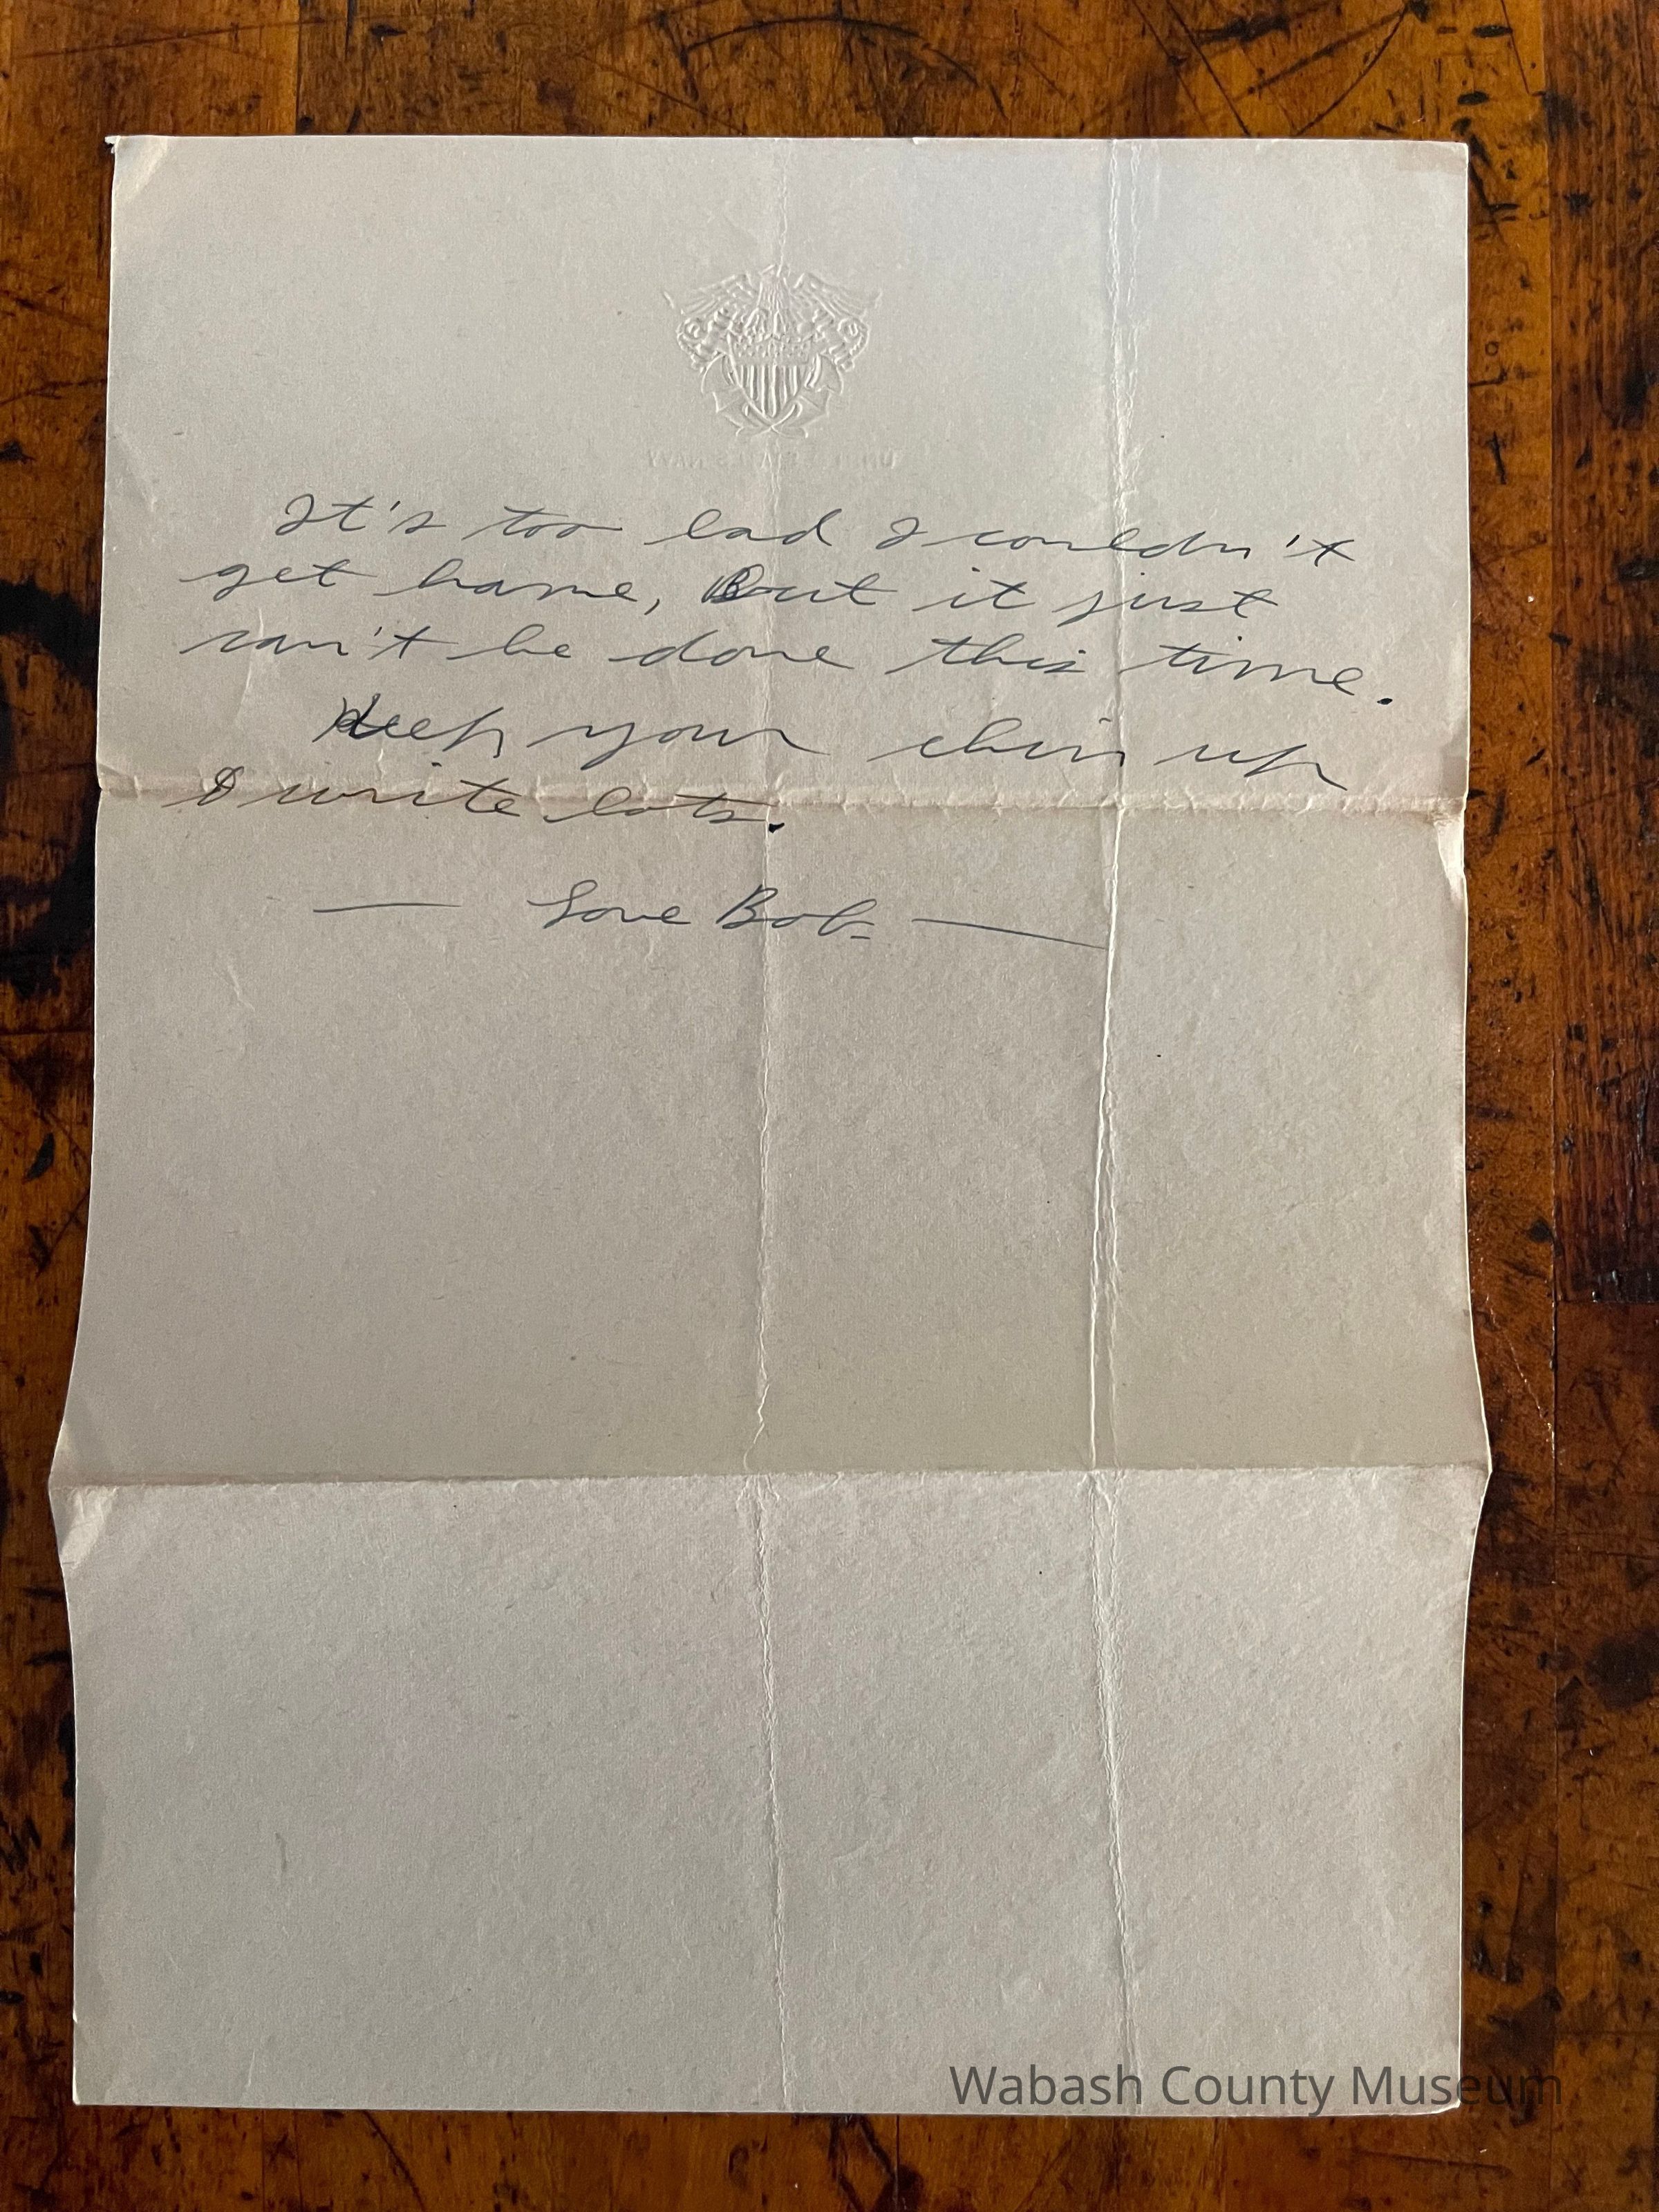 UNITED STATES NAVY
It's too bad I couldn't
get home, But it just
can't be done this time.
Keep your chin up
& write lots.
— Love Bob —
Wabash County Museum